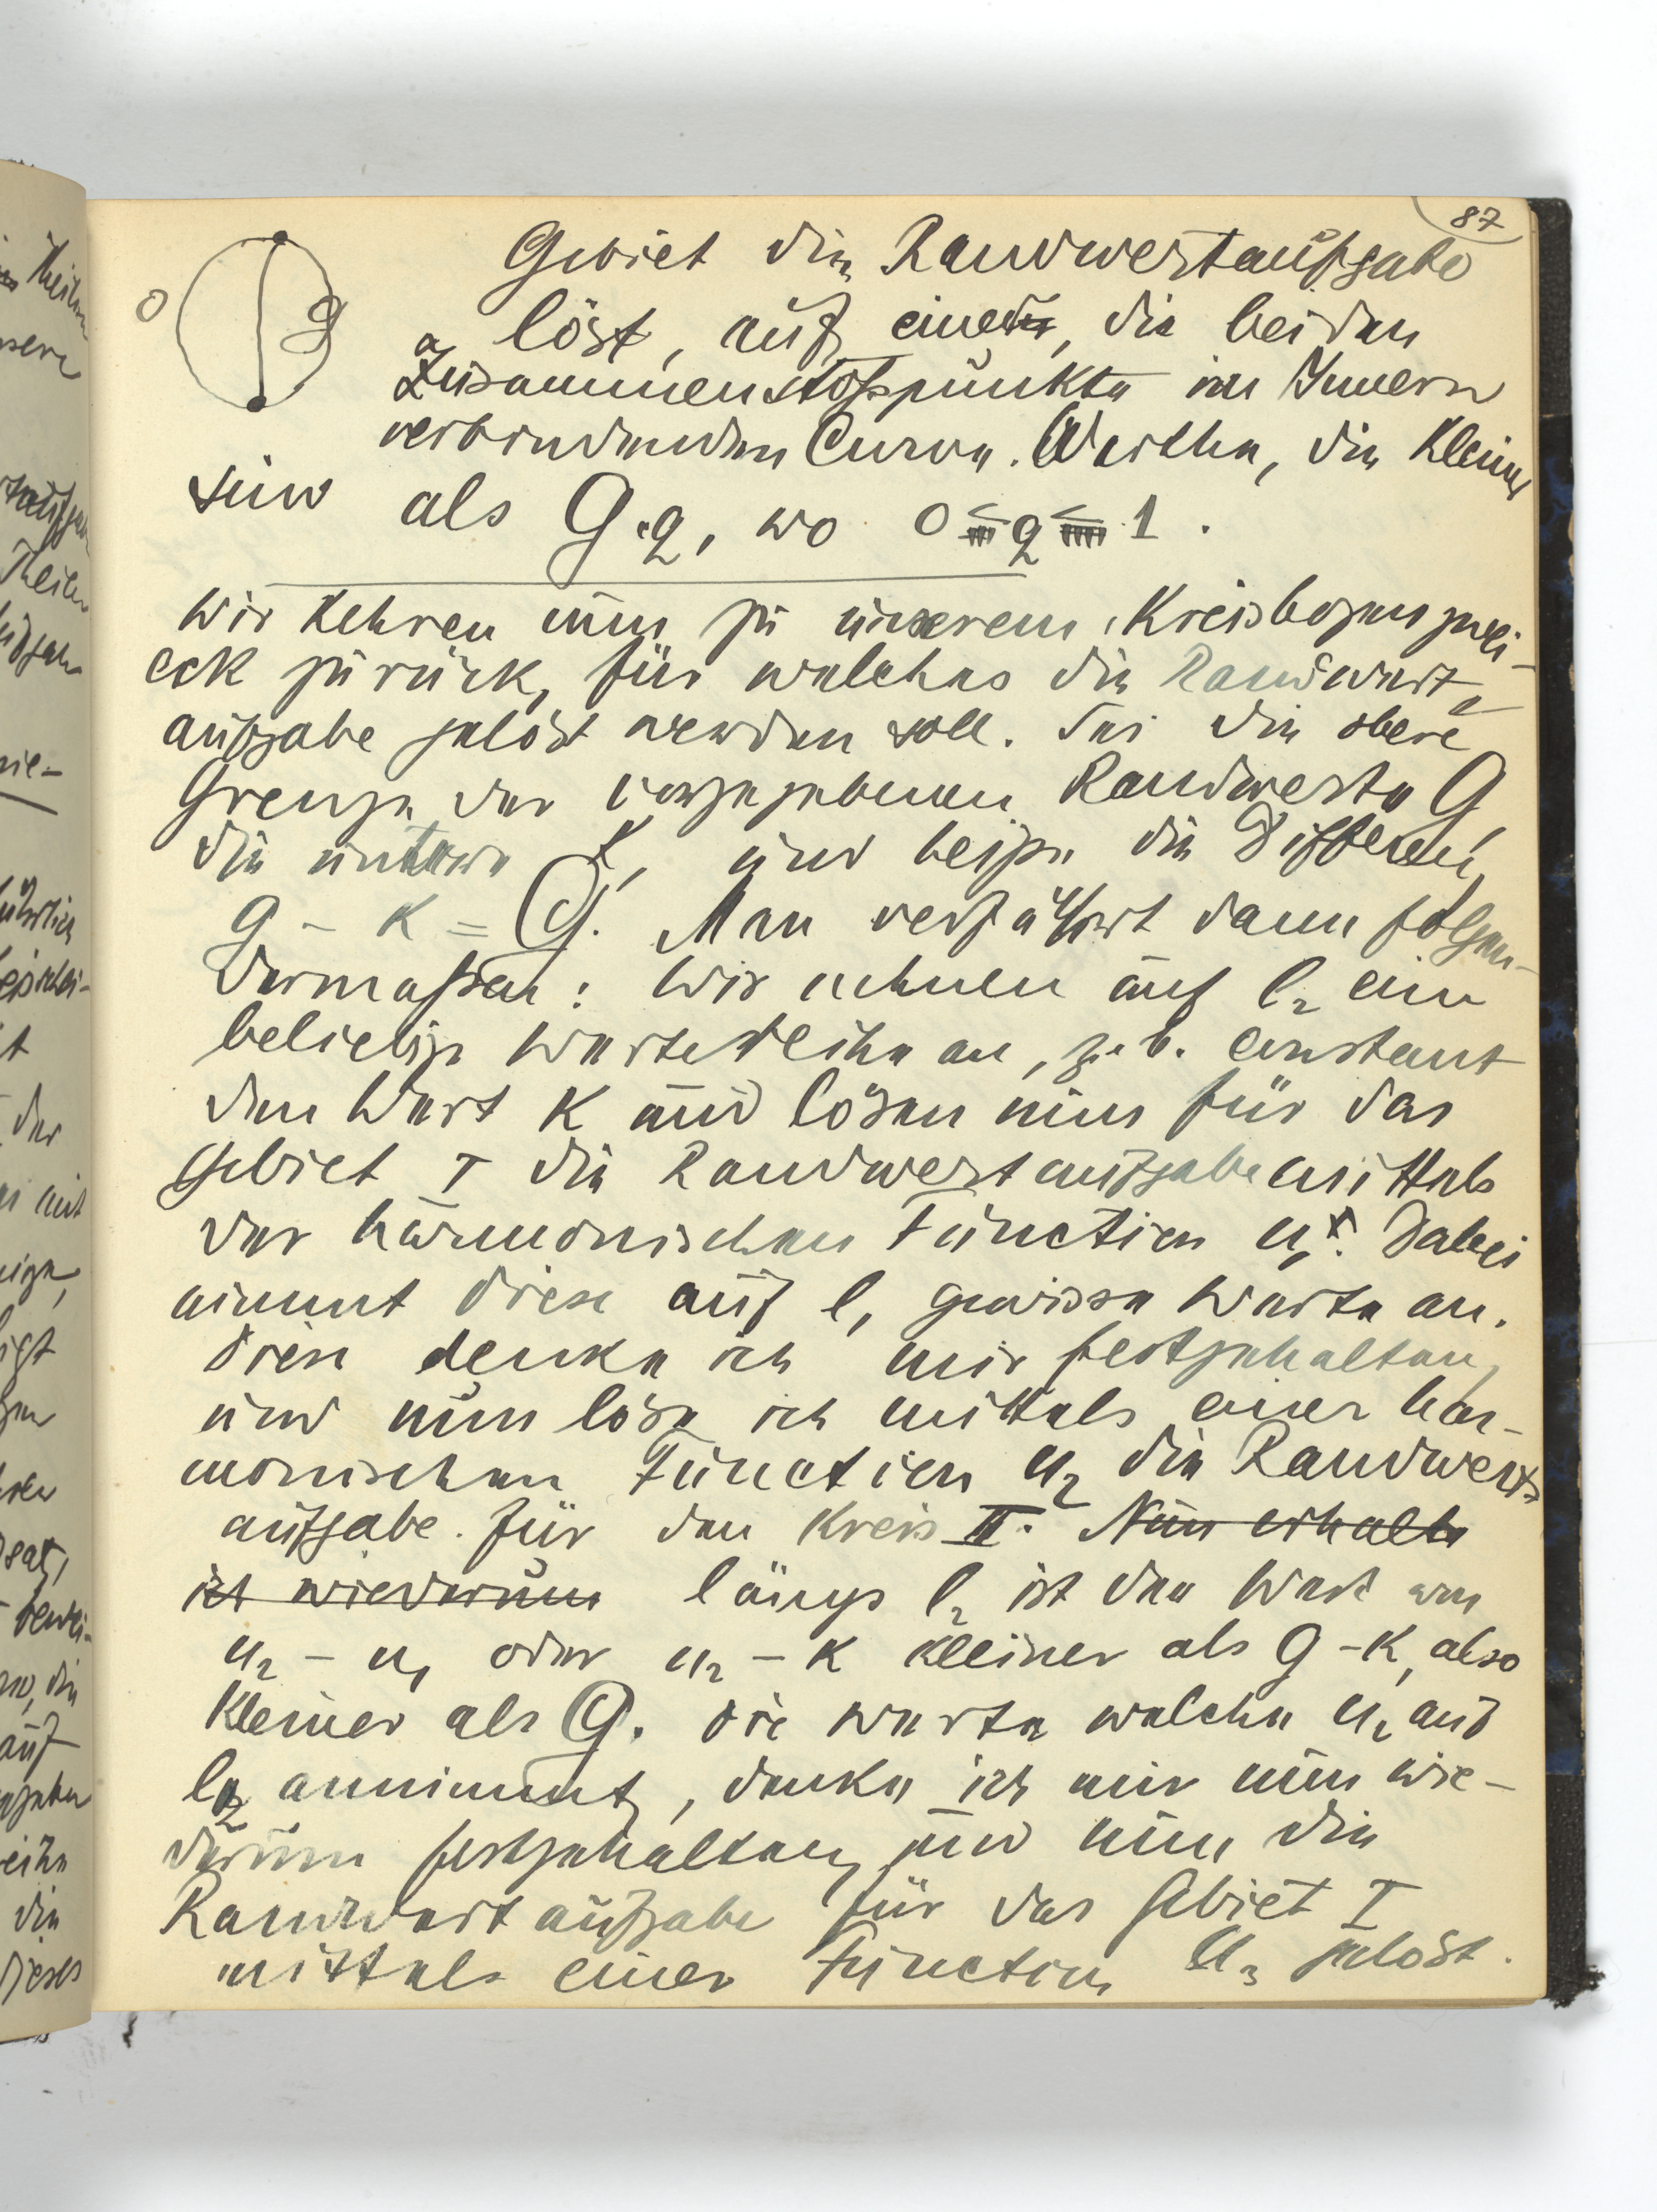 87
Gebiet die Randwertaufgabe
löst, auf einer, die beiden
Zusammenstoßpunkte im Innern
verbindenden Curve. Werthe, die kleiner
sind als G·q, wo 0 < q < 1.
0
g
a
Wir kehren nun zu unserem Kreisbogenzwei-
eck zurück, für welches die Randwert-
aufgabe gelöst werden soll. Sei die obere
Grenze der vorgegebenen Randwerte g,
die untere k, und heisse die Differenz
g - k = G. Man verfährt dann folgen-
dermaßen: Wir nehmen auf l₂ eine
beliebige Wertereihe an, z. b. constant
den Wert K und lösen nun für das
Gebiet I die Randwertaufgabe mittels
der harmonischen Function u₁. Dabei
nimmt diese auf l₁ gewisse Werte an.
Diese denke ich mir festgehalten,
und nun löse ich mittels einer har-
monischen Function u₂ die Randwert-
aufgabe für den Kreis II. Nun erhalte
ich wiederum längs l₂ ist der Wert von
u₂ - u₁ oder u₂ - K kleiner als g - K, also
kleiner als G. Die Werte welche u₂ auf
l₂ annimmt, denke ich mir nun wie-
derum festgehalten und nun die
Randwertaufgabe für das Gebiet I
mittels einer Function u₃ gelöst.